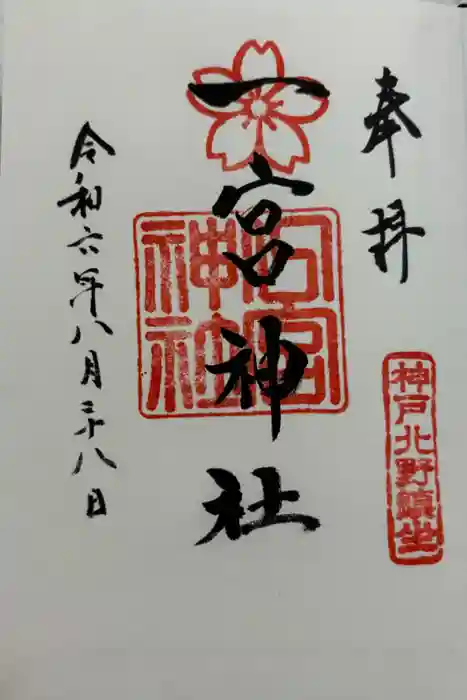 奉拝
神戸北野鎮坐
一宮神社
宮
神社
令和六年八月二十八日